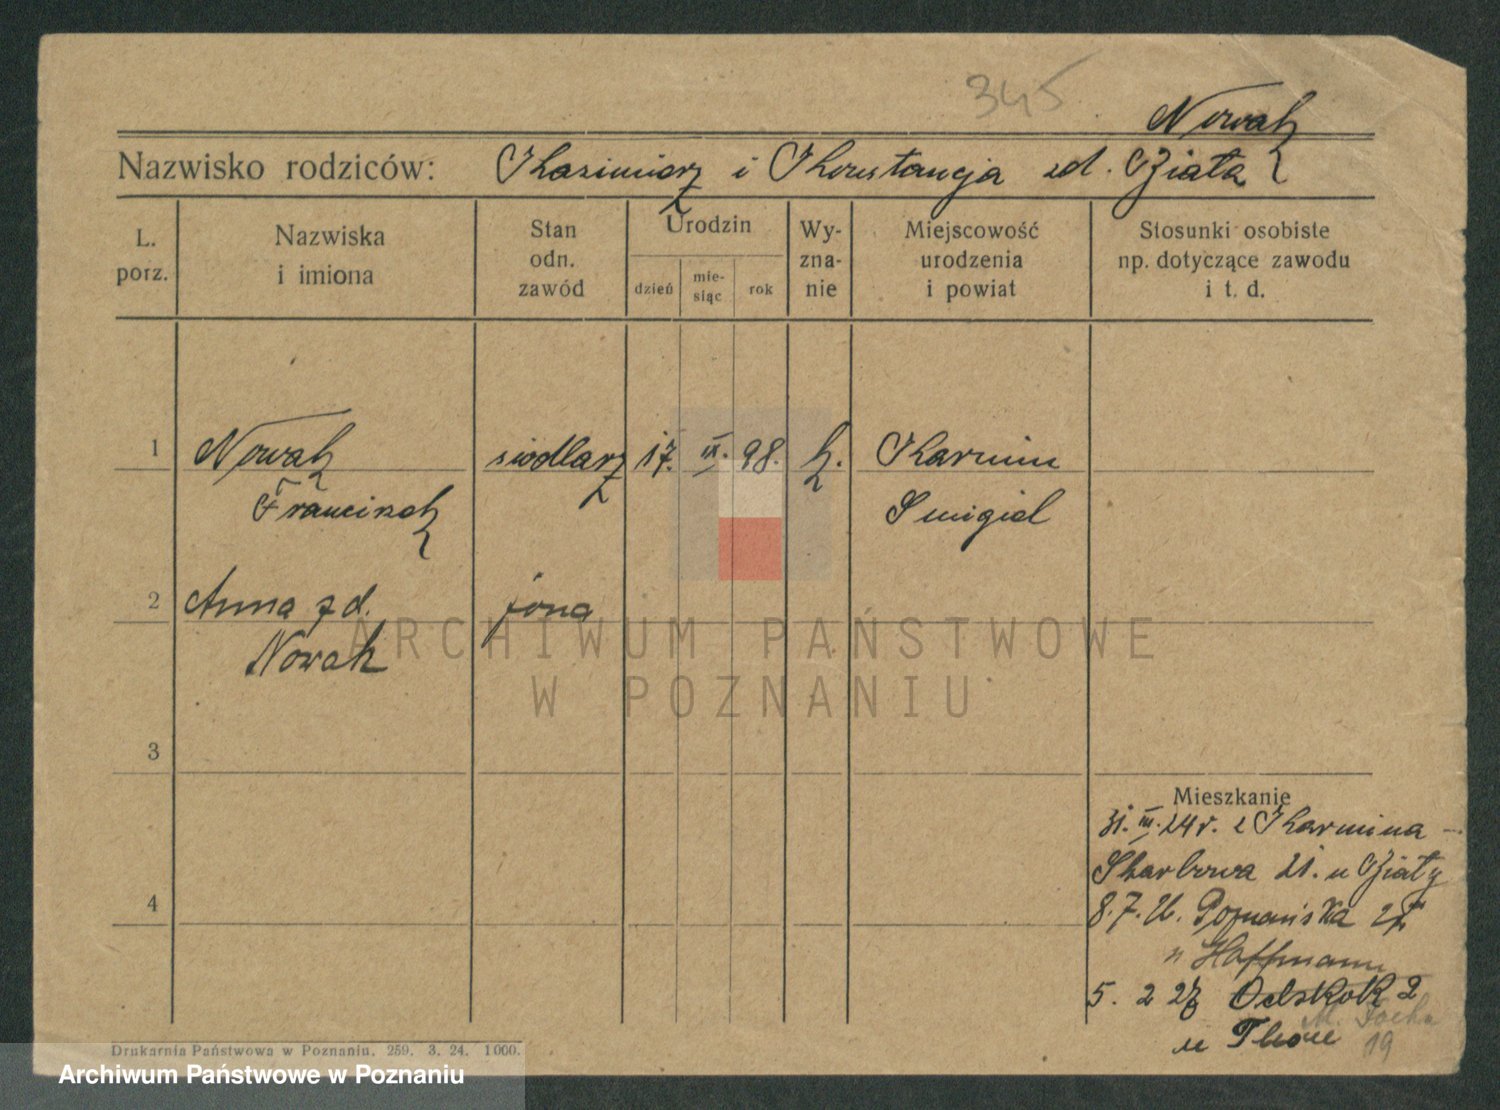 345
Nowak
Nazwisko rodziców: Kazimierz i Konstancja zd. Biała
L. porz.
Nazwiska i imiona
Stan odn. zawód
Urodzin
dzień
mie-siąc
rok
Wy-zna-nie
Miejscowość urodzenia i powiat
Stosunki osobiste np. dotyczące zawodu i t. d.
1 Nowak siodlarz 17. IX. 98. k. Karmin
Franciszek Smigiel
2 Anna zd. żona
Nowak
ARCHIWUM PAŃSTWOWE
W POZNANIU
3
Mieszkanie
31. III. 24 r. z Karmina –
Skarbowa 21. u Biały
4 8.7.26. Poznańska
u Hoffmann
5. 2 27 2
M. Focha
u 19
Drukarnia Państwowa w Poznaniu. 259. 3. 24. 1000.
Archiwum Państwowe w Poznaniu